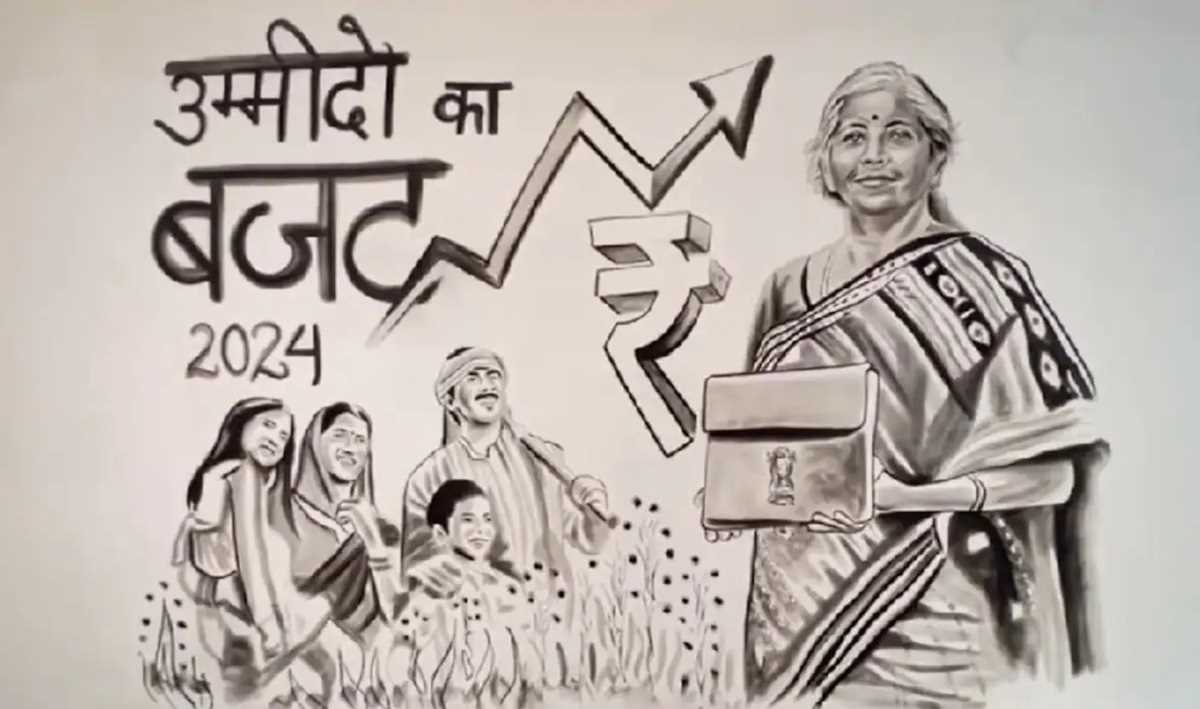 उम्मीदो का
बजट
2024